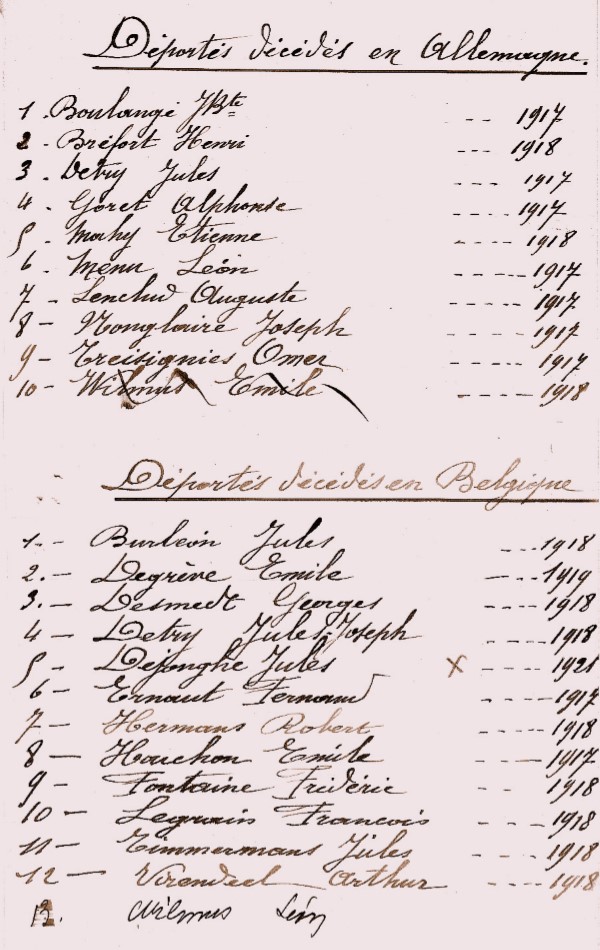 Déportés décédés en Allemagne.
1. Boulangé JBte --- 1917
2. Bréfort Henri --- 1918
3. Detry Jules ---- 1917
4. Goret Alphonse ---- 1917
5. Mahy Etienne ---- 1918
6. Menu Léon ----- 1917
7. Lenclud Auguste ----- 1917
8 - Monglaire Joseph ----- 1917
9 - Treisignies Omer ----- 1917
10 - Wilmus Emile ----- 1918
Déportés décédés en Belgique
1. - Burléon Jules --- 1918
2. - Degrève Emile --- 1919
3. - Desmedt Georges ---- 1918
4 - Detry Jules-Joseph ---- 1918
5 - Dejonghe Jules X ---- 1921
6 - Ernaut Fernand ---- 1917
7 - Hermans Robert ---- 1918
8 - Houchon Emile --- 1917
9 - Fontaine Frédéric -- 1918
10 - Legrain Francois ---- 1918
11 - Timmermans Jules ---- 1918
12 - Virendeel Arthur ---- 1918
13. Wilmus Léon